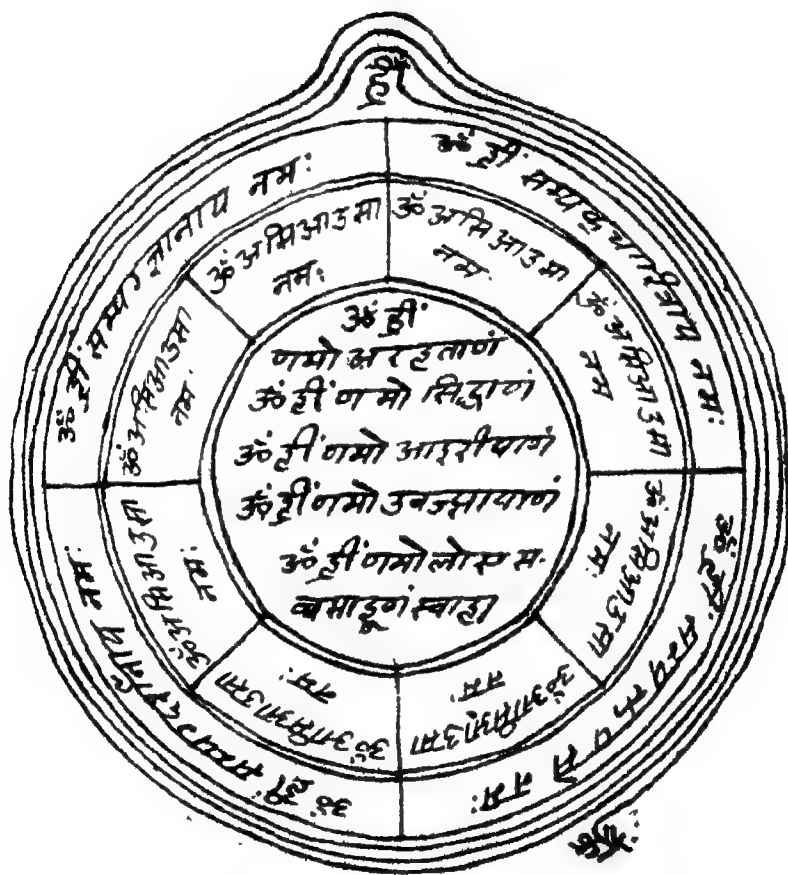 ह्रीं
ॐ ह्रीं सम्यग्ज्ञानाय नमः
ॐ ह्रीं सम्यक् चारित्राय नमः
ॐ ह्रीं सम्यक्तपसे नमः
ॐ ह्रीं सम्यग्दर्शनाय नमः
ॐ असिआउसा
नमः
ॐ असिआउसा
नमः
ॐ असिआउसा
नम
ॐ असिआउसा
नमः
ॐ असिआउसा
नमः
ॐ असिआउसा
नमः
ॐ असिआउसा
नमः
ॐ असिआउसा
नमः
ॐ ह्रीं
णमो अरहताणं
ॐ ह्रीं णमो सिद्धाणं
ॐ ह्रीं णमो आइरीयाणं
ॐ ह्रीं णमो उवज्झायाणं
ॐ ह्रीं णमो लोए स-
व्वसाहूणं स्वाहा